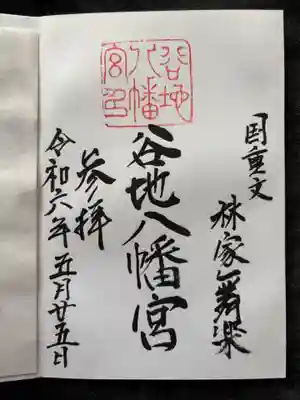 国重文
林家舞楽
谷地八幡宮
谷地八幡宮
参拝
令和六年五月廿五日